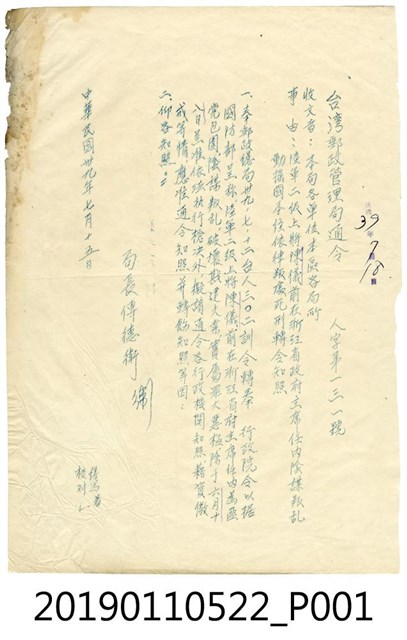 台灣郵政管理局通令
人字第一三一號
收文者:本局各單位本區各局所
事由:陸軍二級上將陳儀前在浙江省政府主席任內陰謀叛亂
動搖國本位依律判處死刑轉令知照
一、奉郵政總局卅九、七、十二台人三〇二訓令轉奉 行政院令以據
國防部呈稱陸軍二級上將陳儀前在浙江省府主席任內為匪
黨包圍陰謀叛亂,破壞戡建大業實屬罪大惡極除于六月十
八日呈准依法執行槍決外擬請通令各行政機關知照藉資儆
戒等情應准通令知照並轉飭知照等因:
二、仰各知照。
局長傅德衛
中華民國卅九年七月十五日
繕寫
校對
39 7 18
20190110522_P001